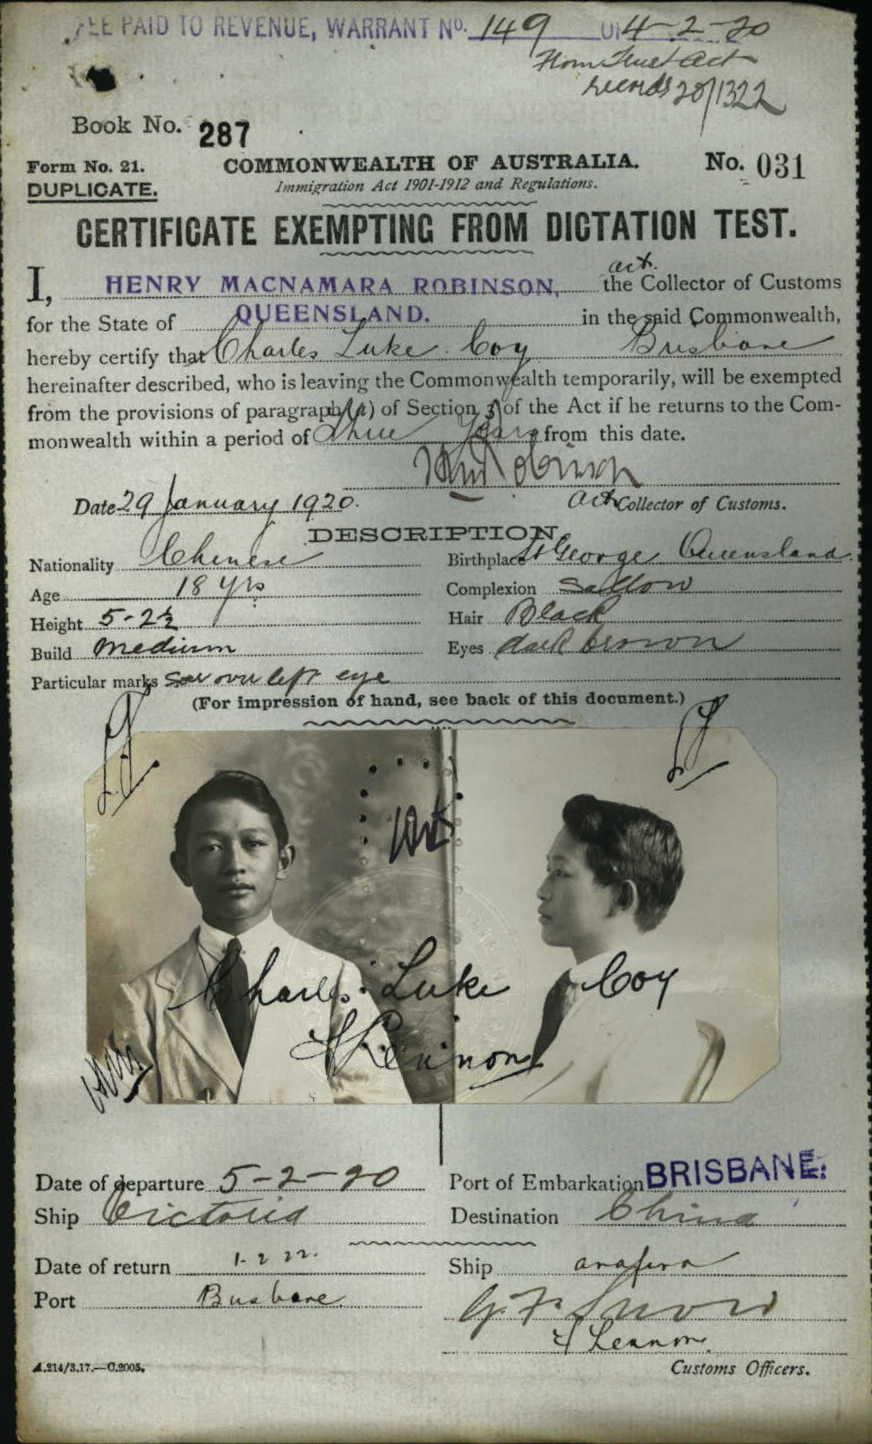 FEE PAID TO REVENUE, WARRANT No. 149 OF 4-2-20
Act
records 20/1322
Book No. 287
Form No. 21.
DUPLICATE.
COMMONWEALTH OF AUSTRALIA.
No. 031
Immigration Act 1901-1912 and Regulations.
CERTIFICATE EXEMPTING FROM DICTATION TEST.
act.
I, HENRY MACNAMARA ROBINSON, the Collector of Customs
for the State of QUEENSLAND. in the said Commonwealth,
hereby certify that Charles Luke Coy Brisbane
hereinafter described, who is leaving the Commonwealth temporarily, will be exempted
from the provisions of paragraph (a) of Section 3 of the Act if he returns to the Com-
monwealth within a period of Three Years from this date.
HM Robinson
Date 29 January 1920. Act Collector of Customs.
DESCRIPTION.
Nationality Chinese Birthplace St George Queensland
Age 18 yrs Complexion Sallow
Height 5-2½ Hair Black
Build medium Eyes dark brown
Particular marks Scar over left eye
(For impression of hand, see back of this document.)
Charles Luke Coy
Lennon
Date of departure 5-2-20 Port of Embarkation BRISBANE.
Ship Victoria Destination China
Date of return 1.2.22. Ship Arafura
Port Brisbane G.F. Snow
Lennon
A.214/3.17.—C.2005. Customs Officers.